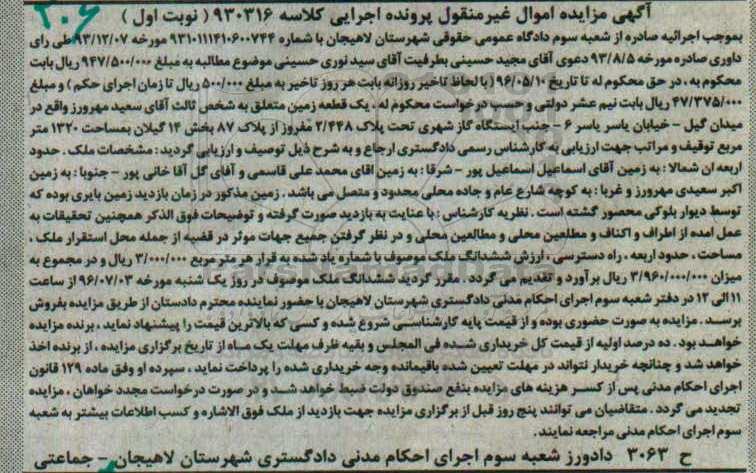 ۲۰۶
آگهی مزایده اموال غیرمنقول پرونده اجرایی کلاسه ۹۳۰۳۱۶ ( نوبت اول )
بموجب اجرائیه صادره از شعبه سوم دادگاه عمومی حقوقی شهرستان لاهیجان با شماره ۹۳۱۰۱۱۱۴۱۰۶۰۰۷۴۴ مورخه ۹۳/۱۲/۰۷ طی رای
داوری صادره مورخه ۹۳/۸/۵ دعوی آقای مجید حسینی بطرفیت آقای سید نوری حسینی موضوع مطالبه به مبلغ ۹۴۷/۵۰۰/۰۰۰ ریال بابت
محکوم به ، در حق محکوم له تا تاریخ ۹۶/۰۵/۱۰ ( با لحاظ تاخیر روزانه بابت هر روز تاخیر به مبلغ ۵۰۰/۰۰۰ ریال تا زمان اجرای حکم ) و مبلغ
۴۷/۳۷۵/۰۰۰ ریال بابت نیم عشر دولتی و حسب درخواست محکوم له ، یک قطعه زمین متعلق به شخص ثالث آقای سعید مهرورز واقع در
میدان گیل – خیابان یاسر یاسر ۶ – جنب ایستگاه گاز شهری تحت پلاک ۲/۴۴۸ مفروز از پلاک ۸۷ بخش ۱۴ گیلان بمساحت ۱۳۲۰ متر
مربع توقیف و مراتب جهت ارزیابی به کارشناس رسمی دادگستری ارجاع و به شرح ذیل توصیف و ارزیابی گردید : مشخصات ملک . حدود
اربعه ان شمالا : به زمین آقای اسماعیل اسماعیل پور – شرقا : به زمین اقای محمد علی قاسمی و آقای گل آقا خانی پور – جنوبا : به زمین
اکبر سعیدی مهرورز و غربا : به کوچه شارع عام و جاده محلی محدود و متصل می باشد . زمین مذکور در زمان بازدید زمین بایری بوده که
توسط دیوار بلوکی محصور گشته است . نظریه کارشناس : با عنایت به بازدید صورت گرفته و توضیحات فوق الذکر همچنین تحقیقات به
عمل امده از اطراف و اکناف و مطلعین محلی و مطالعین محلی و در نظر گرفتن جمیع جهات موثر در قضیه از جمله محل استقرار ملک ،
مساحت ، حدود اربعه ، راه دسترسی ، ارزش ششدانگ ملک موصوف با شماره یاد شده به قرار هر متر مربع ۳/۰۰۰/۰۰۰ ریال و در مجموع به
میزان ۳/۹۶۰/۰۰۰/۰۰۰ ریال برآورد و تقدیم می گردد . مقرر گردید ششدانگ ملک موصوف در روز یک شنبه مورخه ۹۶/۰۷/۰۳ از ساعت
۱۱ الی ۱۲ در دفتر شعبه سوم اجرای احکام مدنی دادگستری شهرستان لاهیجان با حضور نماینده محترم دادستان از طریق مزایده بفروش
برسد . مزایده به صورت حضوری بوده و از قیمت پایه کارشناسی شروع شده و کسی که بالاترین قیمت را پیشنهاد نماید ، برنده مزایده
خواهد بود . ده درصد اولیه از قیمت کل خریداری شده فی المجلس و بقیه ظرف مهلت یک ماه از تاریخ برگزاری مزایده ، از برنده اخذ
خواهد شد و چنانچه خریدار نتواند در مهلت تعیین شده باقیمانده وجه خریداری شده را پرداخت نماید ، سپرده او وفق ماده ۱۲۹ قانون
اجرای احکام مدنی پس از کسر هزینه های مزایده بنفع صندوق دولت ضبط خواهد شد و در صورت درخواست مجدد خواهان ، مزایده
تجدید می گردد . متقاضیان می توانند پنج روز قبل از برگزاری مزایده جهت بازدید از ملک فوق الاشاره و کسب اطلاعات بیشتر به شعبه
سوم اجرای احکام مدنی مراجعه نمایند .
ح ۳۰۶۳ دادورز شعبه سوم اجرای احکام مدنی دادگستری شهرستان لاهیجان – جماعتی